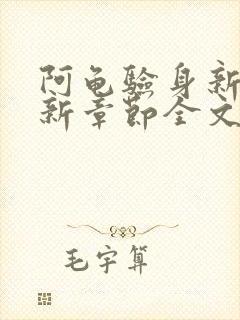 阿龟验身新
新章节全文
毛宇算